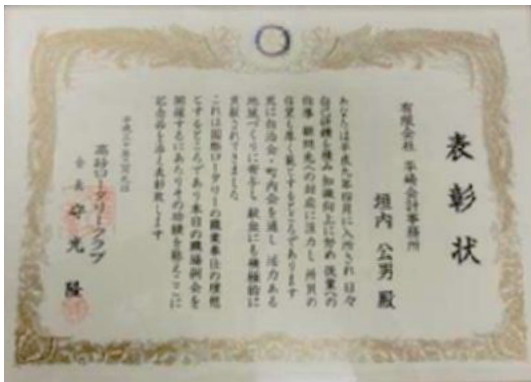 表彰状
有限会社 岸崎会計事務所
垣内 公男 殿
あなたは平成九年四月に入所され 日々
自己研鑽を積み 知識向上に努め 従業への
指導 顧問先への対応に注力し 所員の
信望も厚く範とするところであります
更に自治会・町内会を通し 活力ある
地域づくりに寄与し 献血にも積極的に
貢献されてきました
これは国際ロータリーの職業奉仕の理想
とするところであり 本日の職場例会を
開催するにあたりその功績を称えここに
記念品を添え表彰致します
高砂ロータリークラブ
会長 守光 隆